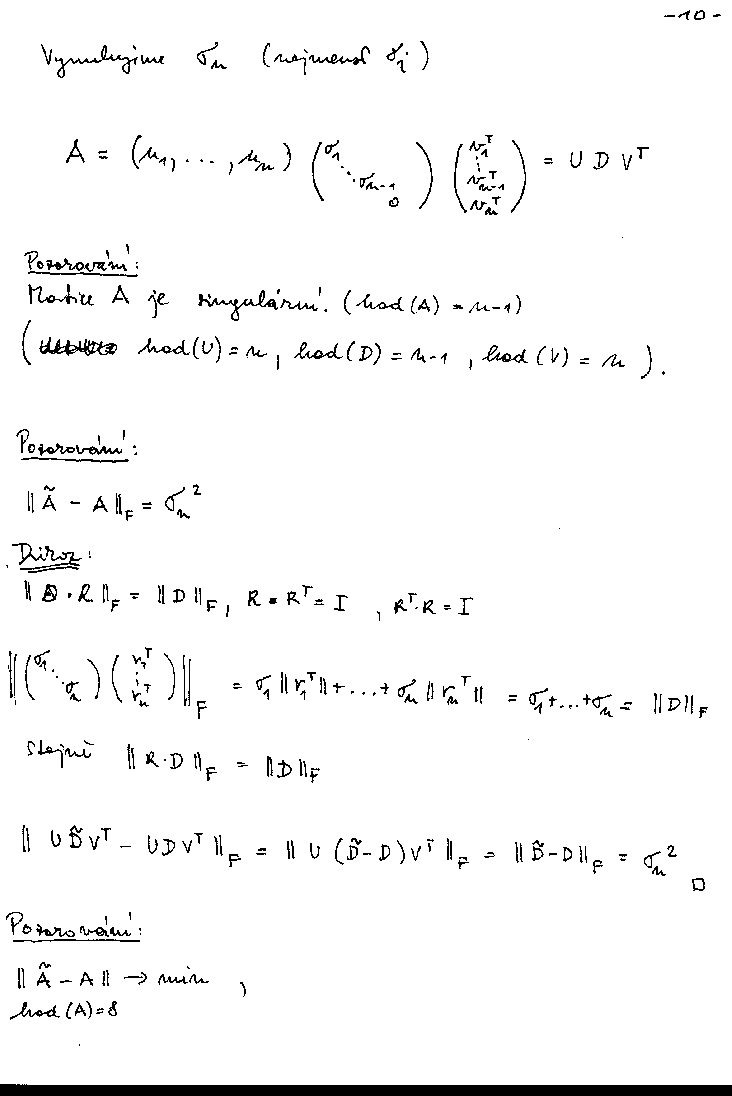 -10-
Vynulujime σ_n (nejmenší σ_i)
A = (u_1, ..., u_n) (σ_1 ⋱ σ_{n-1} 0) (v_1^T ⋮ v_{n-1}^T v_n^T) = U D V^T
Pozorování:
Matice A je singulární. (hod(A) = n-1)
( hod(U) = n, hod(D) = n-1, hod(V) = n ).
Pozorování:
‖Ã - A‖_F = σ_n^2
Důkaz:
‖D·R‖_F = ‖D‖_F, R·R^T = I, R^T·R = I
‖(σ_1 ⋱ σ_n) (r_1^T ⋮ r_n^T)‖_F = σ_1‖r_1^T‖+...+σ_n‖r_n^T‖ = σ_1+...+σ_n = ‖D‖_F
Stejně ‖R·D‖_F = ‖D‖_F
‖U D̃ V^T - U D V^T‖_F = ‖U (D̃-D) V^T‖_F = ‖D̃-D‖_F = σ_n^2 □
Pozorování:
‖Ã - A‖ → min ,
hod(A)=8